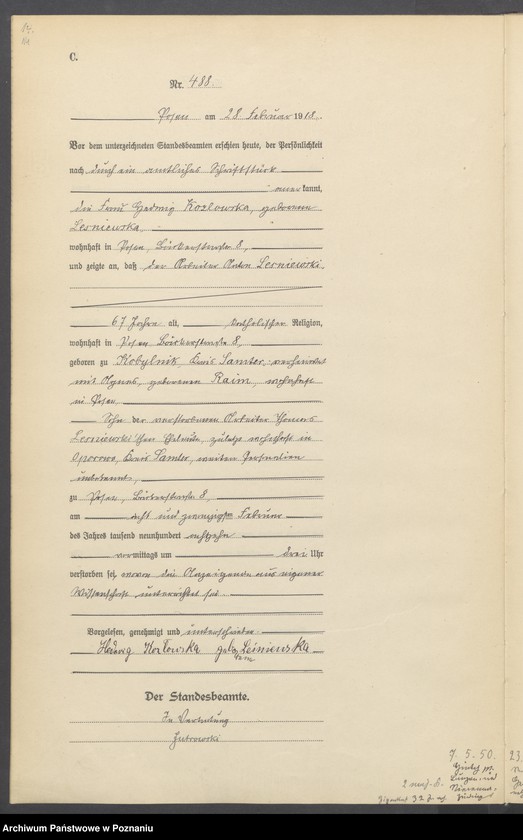 C.
Nr. 488.
Posen am 28 Februar 1918.
Vor dem unterzeichneten Standesbeamten erschien heute, der Persönlichkeit
nach durch ein amtliches Schriftstück
anerkannt,
die Frau Hedwig Kozlowska, geborene
Lesniewska,
wohnhaft in Posen, Bäckerstraße 8,
und zeigte an, daß der Arbeiter Anton Lesniewski,
67 Jahre alt, katholischer Religion,
wohnhaft in Posen Bäckerstraße 8,
geboren zu Kobylnik, Kreis Samter, verheiratet
mit Agnes, geborenen Raim, wohnhaft
in Posen,
Sohn der verstorbenen Arbeiter Thomas
Lesniewski'schen Eheleute, zuletzt wohnhaft in
Oporowo, Kreis Samter, weitere Personalien
unbekannt,
zu Posen, Bäckerstraße 8,
am acht und zwanzigsten Februar
des Jahres tausend neunhundert achtzehn
vormittags um drei Uhr
verstorben sei, wovon die Anzeigende aus eigener
Wissenschaft unterrichtet sei.
Vorgelesen, genehmigt und unterschrieben
Hedwig Kozlowska geb.
Der Standesbeamte.
In Vertretung
7. 5. 50.
Archiwum Państwowe w Poznaniu